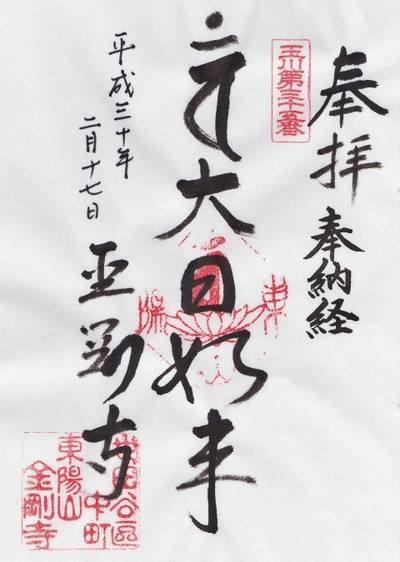 奉拝
奉納経
玉川第三十五番
大日如来
東
陽
平成三十年
二月十七日
金剛寺
世田谷區
中町
東陽山
金剛寺